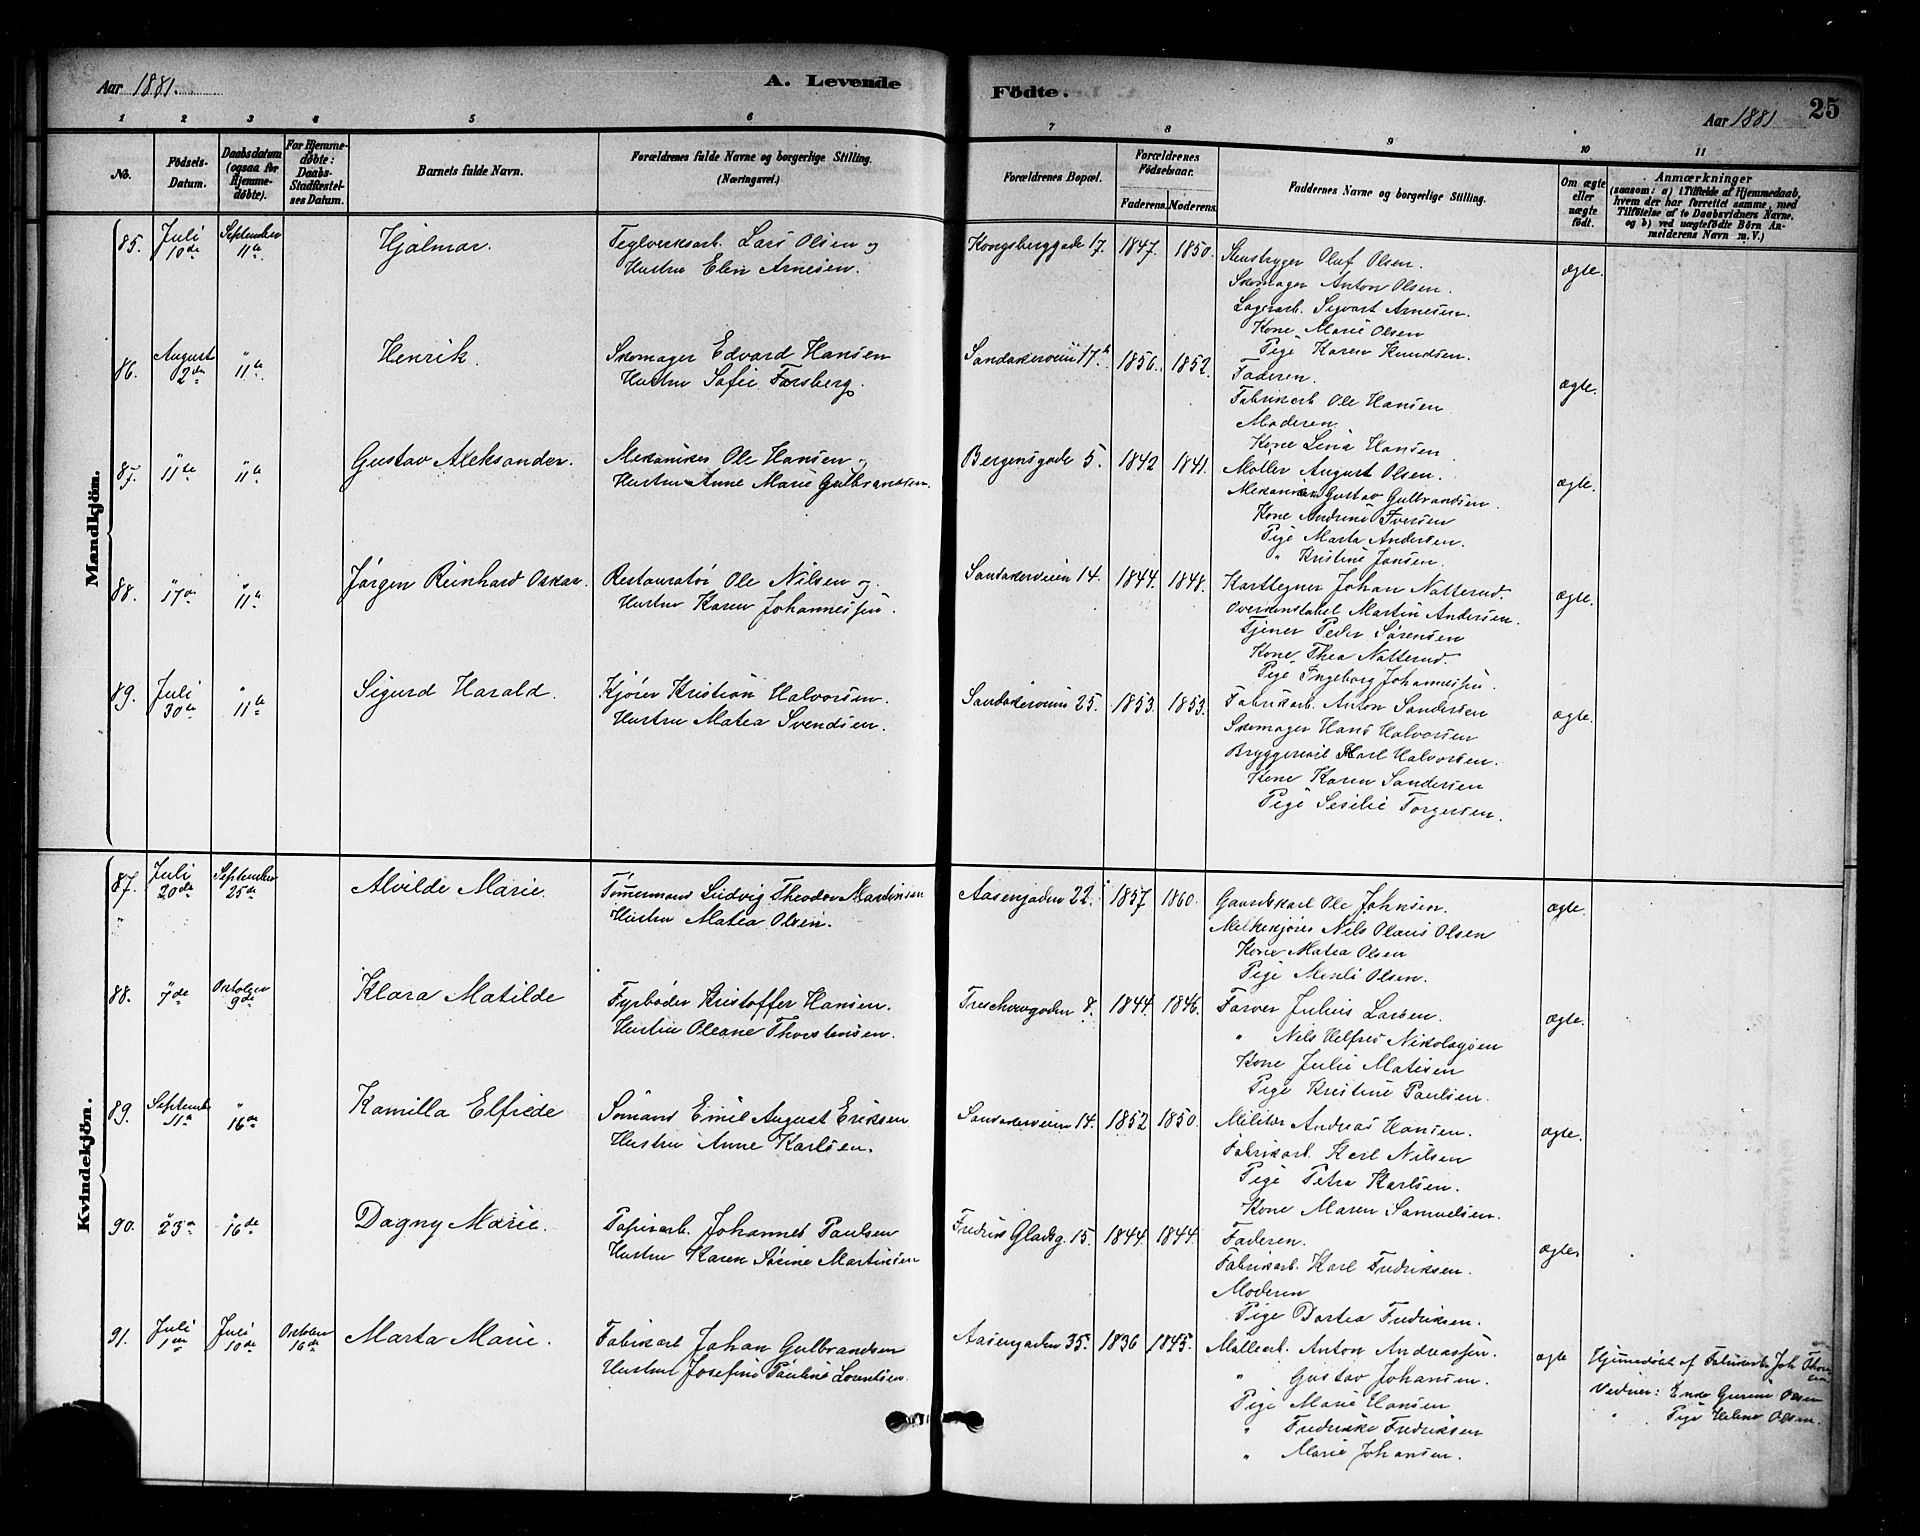 Aar 1881.
A. Levende
Födte.
Aar 1881
25
1 2 3 4 5 6 7 8 9 10 11
No.
Fødsels-Datum.
Daabsdatum (ogsaa for Hjemmedøbte).
For Hjemmedøbte: Daabs-Stadfæstelses Datum.
Barnets fulde Navn.
Forældrenes fulde Navne og borgerlige Stilling. (Næringsvei.)
Forældrenes Bopæl.
Forældrenes Fødselsaar.
Faderens. Moderens.
Faddernes Navne og borgerlige Stilling.
Om ægte eller uægte født.
Anmærkninger
(saasom: a) i Tilfælde af Hjemmedaab, hvem der har forrettet samme, med Tilføielse af to Daabsvidners Navne, og b) ved uægtefødte Børn Anmelderens Navn m. V.)
Mandkjön.
85. Juli 10de September 11te Hjalmar. Teglverksarb. Lars Olsen og
Hustru Elen Arnesen.
Kongsberggade 17. 1847. 1850. Olaf Olsen. ægte.
Skomager Anton Olsen.
Lagerarb. Sigvart Arnesen.
Kone Marie Olsen
Pige Karen Knudsen.
86. August 2den " 11te Henrik. Skomager Edvard Hansen
Hustru Sofie Forsberg.
Sandakerveien 17b 1856. 1852. Faderen. ægte.
Fabrikarb Ole Hansen
Moderen
Kone Lina Hansen
87. " 11te " 11te Gustav Aleksander. Mekaniker Ole Hansen og
Hustru Anne Marie Gulbrandsen.
Bergensgade 5. 1842 1841. Møller August Olsen. ægte.
Mekaniker Gustav Gulbrandsen.
Kone Andrine Iversen
Pige Marta Andersen.
" Kristine Jansen.
88. " 17de " 11te Jørgen Reinhard Oskar. Restauratør Ole Nilsen og
Hustru Karen Johannessen.
Sandakerveien 14. 1844. 1848. Karttegner Johan Natterud. ægte.
Overkonstabel Martin Andersen.
Tjener Peder Sørensen
Kone Thea Natterud.
Pige Ingeborg Johannessen.
89. Juli 30te " 11te Sigurd Harald. Kjører Kristian Halvorsen.
Hustru Matea Svendsen.
Sandakerveien 25. 1853. 1853. Fabrikarb. Anton Sandersen ægte.
Skomager Hans Halvorsen
Karl Halvorsen.
Kone Karen Sandersen
Pige Sesilie Torgersen.
Kvindekjön.
87. Juli 20de September 25de Alvilde Marie. Tømermand Ludvig Theodor Martinsen
" Hustru Matea Olsen.
Aasengaden 22. 1857 1860. Gaardskarl Ole Johnsen. ægte.
Melkekjører Nils Olaus Olsen
Kone Matea Olsen
Pige Olsen.
88. " 7de Oktober 9de Klara Matilde Fyrbøder Kristoffer Hansen.
Hustru Oleane Thorstensen.
Treschowsgaden 8. 1844. 1846. Farver Julius Larsen. ægte.
" Nils Nikolaysen
Kone Julie Matisen
Pige Kristine Paulsen.
89. September 11te " 16de Kamilla Elfride Sømand Emil August Eriksen
Hustru Anne Karlsen.
Sandakerveien 14. 1852 1850. Militær Andreas Hansen. ægte.
Fabrikarb. Karl Nilsen
Pige Petra Karlsen.
Kone Maren Samuelsen.
90. " 23de " 16de Dagny Marie. Papirarb. Johannes Paulsen
Hustru Karen Sørine Martinsen
Fredrik Gladsg. 15. 1844. 1844. Faderen. ægte.
Fabrikarb. Karl Fredriksen.
Moderen
Pige Dortea Fredriksen.
91. Juli 1ste Juli 10de Oktober 16de Marta Marie. Fabrikarb Johan Gulbrandsen
Hustru Josefine Pauline Lorentsen.
Aasengaden 35. 1836 1845. Møllearb. Anton Andreassen. ægte Hjemmedøbt af Fabrikarb. Joh
" Gustav Johansen. Vidner: Enke Olsen
Pige Marie Hansen " Pige Helene Olsen.
" Fredrikke Fredriksen
" Marie Johansen.